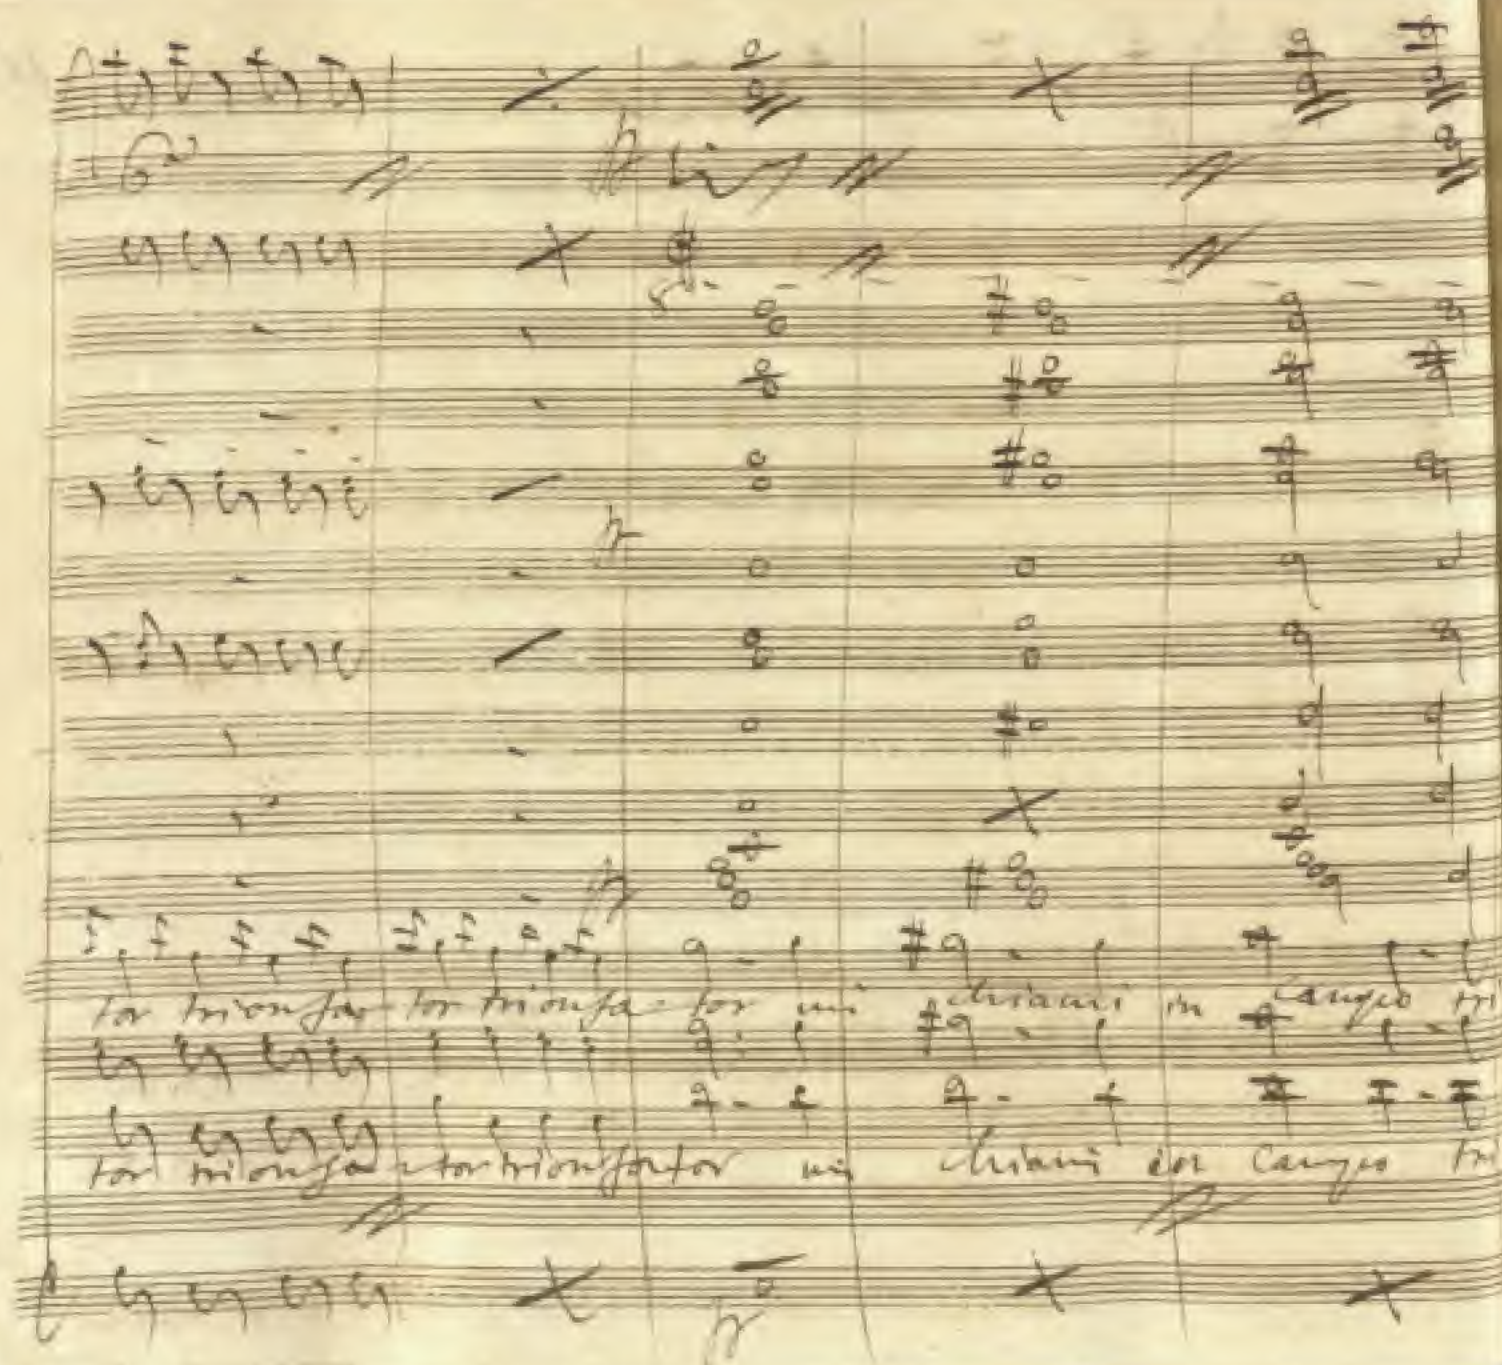 tor trionfar tor trionfa tor mi chiami in campo tri
tor trionfa tor trionfa tor mi chiami in campo tri